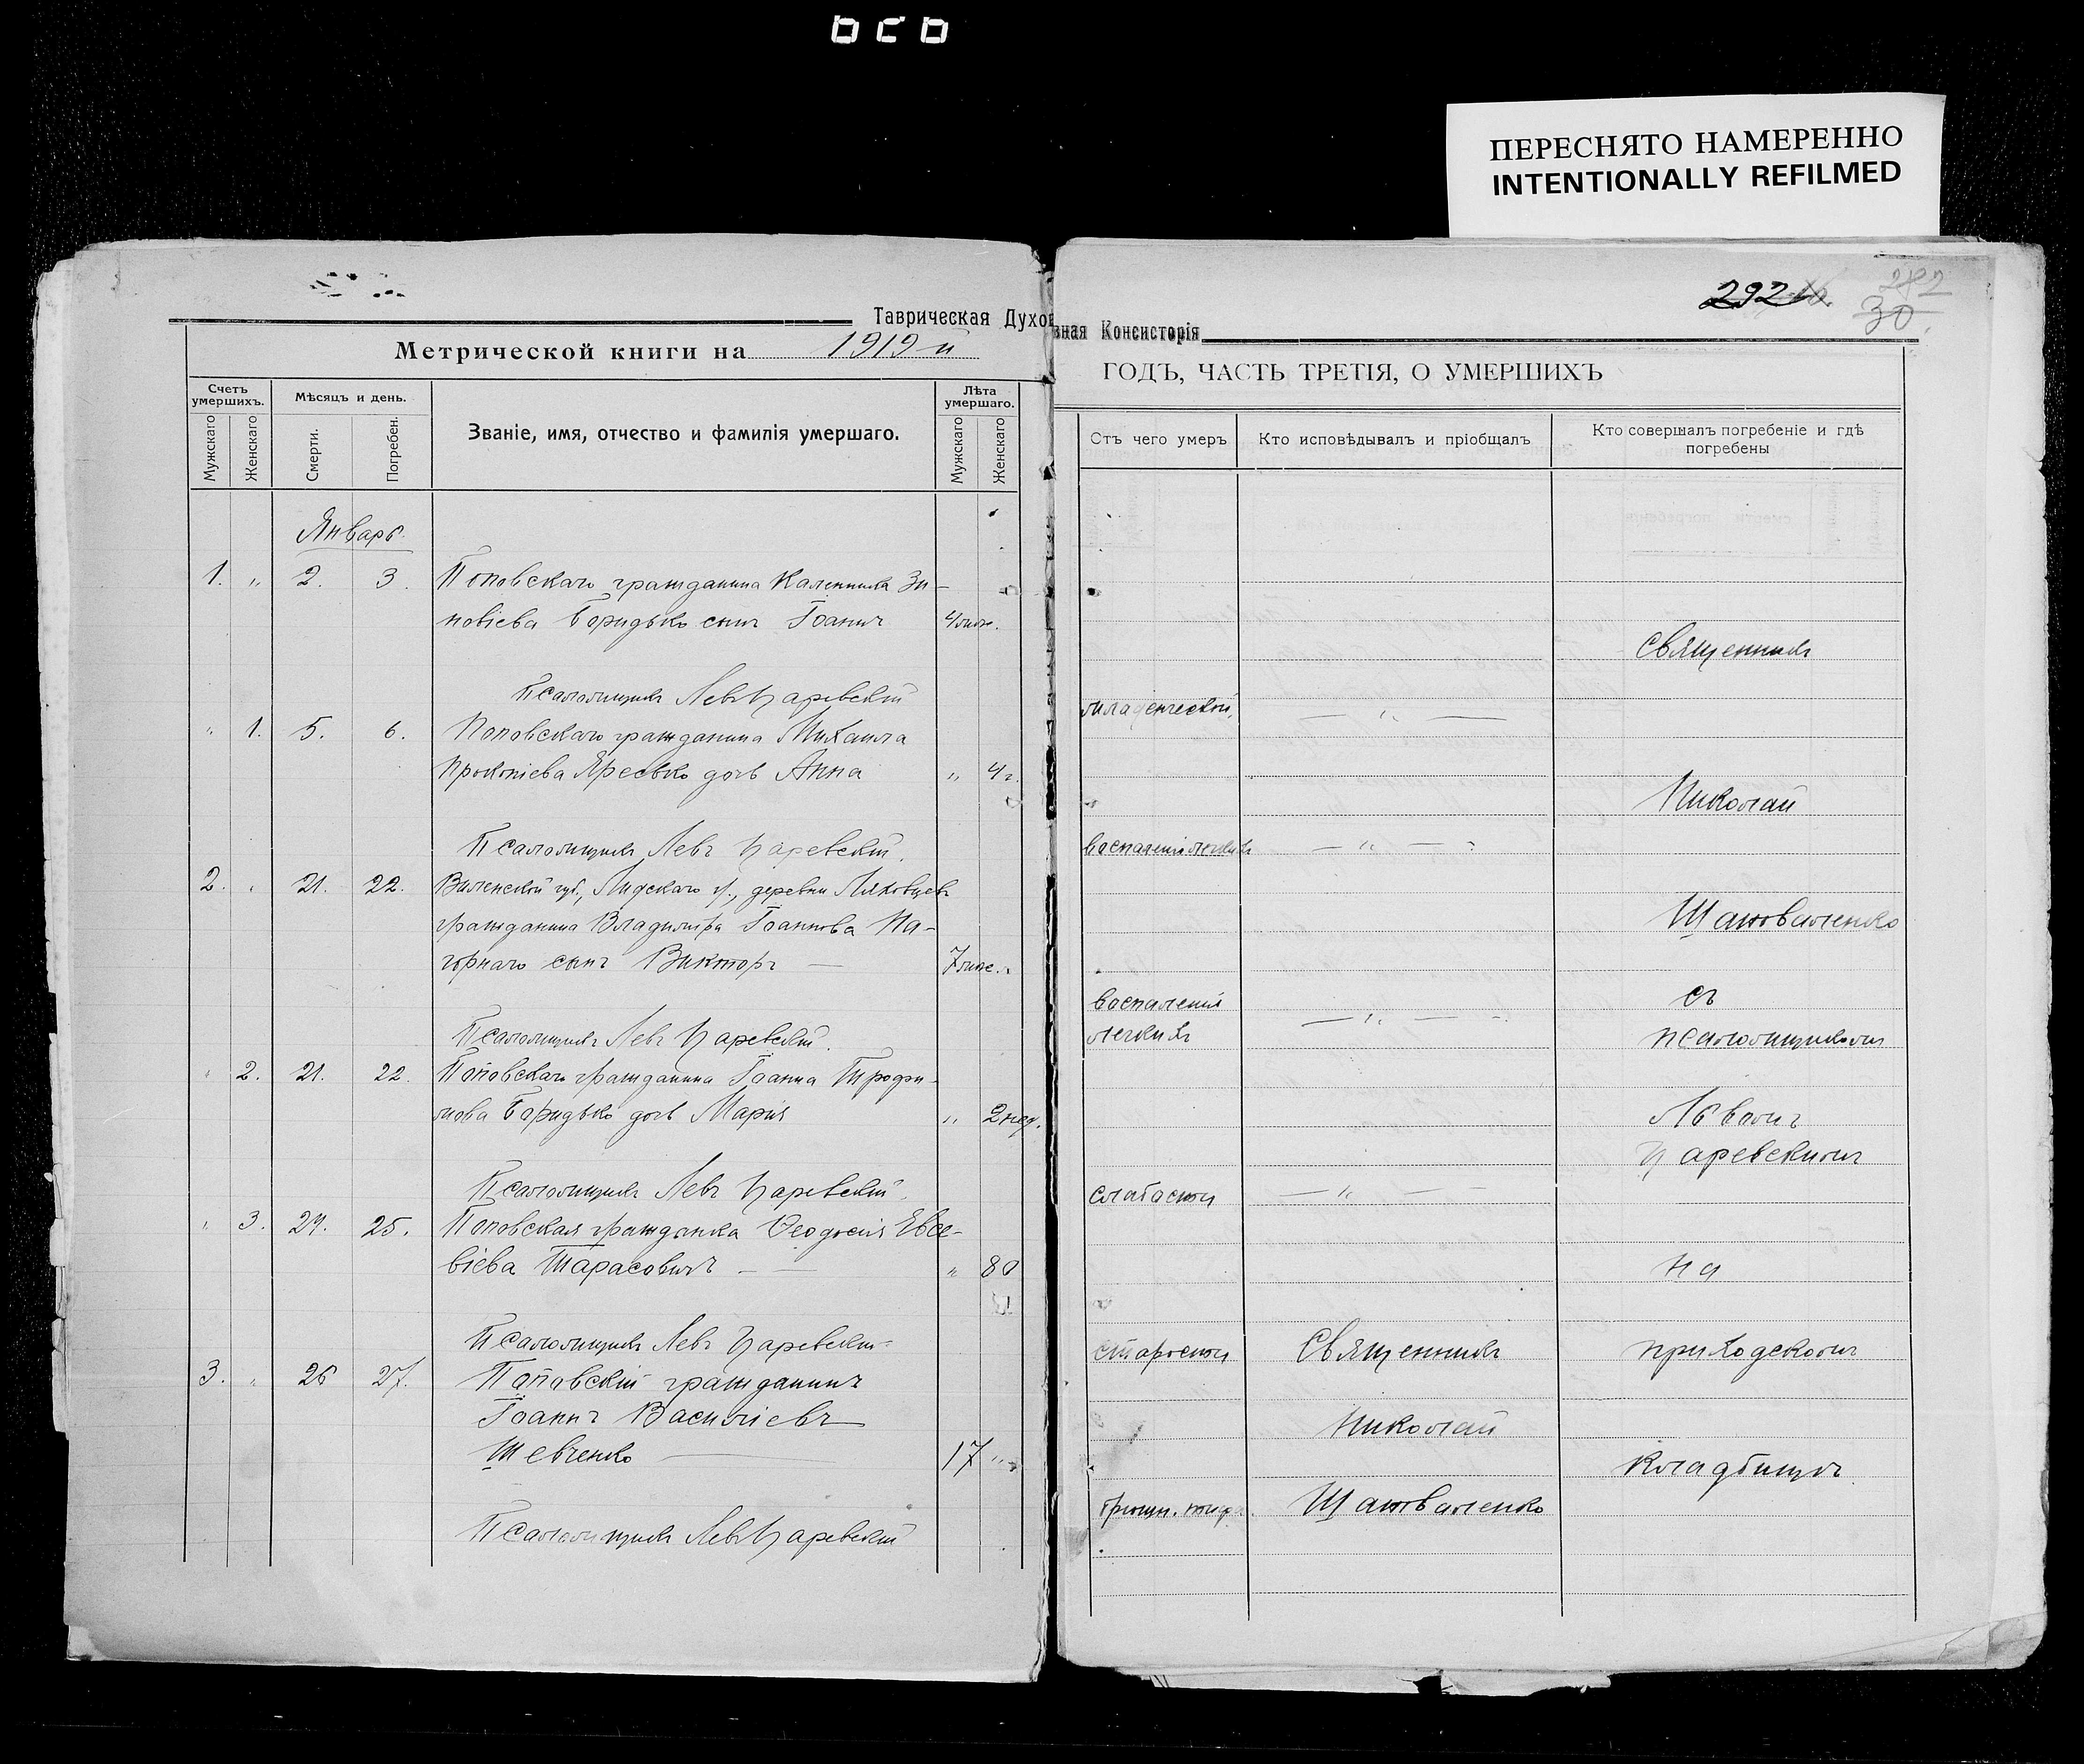 ПЕРЕСНЯТО НАМЕРЕННО
INTENTIONALLY REFILMED
292
30
Таврическая Духовная Консисторія
Метрической книги на 1919 й
ГОДЪ, ЧАСТЬ ТРЕТІЯ, О УМЕРШИХЪ
Счетъ умершихъ.
Мужскаго
Женскаго
Мѣсяцъ и день.
Смерти.
Погребен.
Званіе, имя, отчество и фамилія умершаго.
Лѣта умершаго.
Мужскаго
Женскаго
Отъ чего умеръ
Кто исповѣдывалъ и пріобщалъ
Кто совершалъ погребеніе и гдѣ
погребены
Январь.
1. „ 2. 3. Поповскаго гражданина Каленника Зи-
новіева Боридько сынъ Іоаннъ 4 мѣс.
Псаломщикъ Левъ Царевскій
младенческой
„ 1. 5. 6. Поповскаго гражданина Михаила
Прокопіева Яресько дочь Анна „ 4 г.
Псаломщикъ Левъ Царевскій.
воспаленія легкихъ
2. „ 21. 22. Виленской губ., Лидскаго у., деревни
гражданина Владиміра Іоаннова На-
горнаго сынъ Викторъ — 7 мѣс. „
Псаломщикъ Левъ Царевскій.
воспаленія
легкихъ
„ 2. 21. 22. Поповскаго гражданина Іоанна Трофи-
мова Боридько дочь Марія „ 2 нед.
Псаломщикъ Левъ Царевскій.
слабости
„ 3. 24. 25. Поповская гражданка Ѳеодосія Евсе-
віева Тарасовичъ — „ 80
Псаломщикъ Левъ Царевскій
старости
Священникъ
Николай
Шаповаленко
3. „ 26 27. Поповскій гражданинъ
Іоаннъ Василіевъ
Шевченко — 17 „
Псаломщикъ Левъ Царевскій
брюшн. тифа.
Священникъ
Николай
Шаповаленко
съ
псаломщикомъ
Львомъ
Царевскимъ
на
приходскомъ
кладбищѣ.